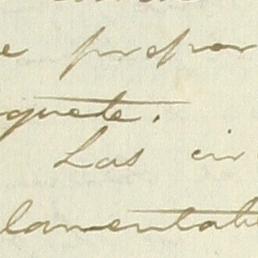 e propor
quete.
Las cir
lamentab